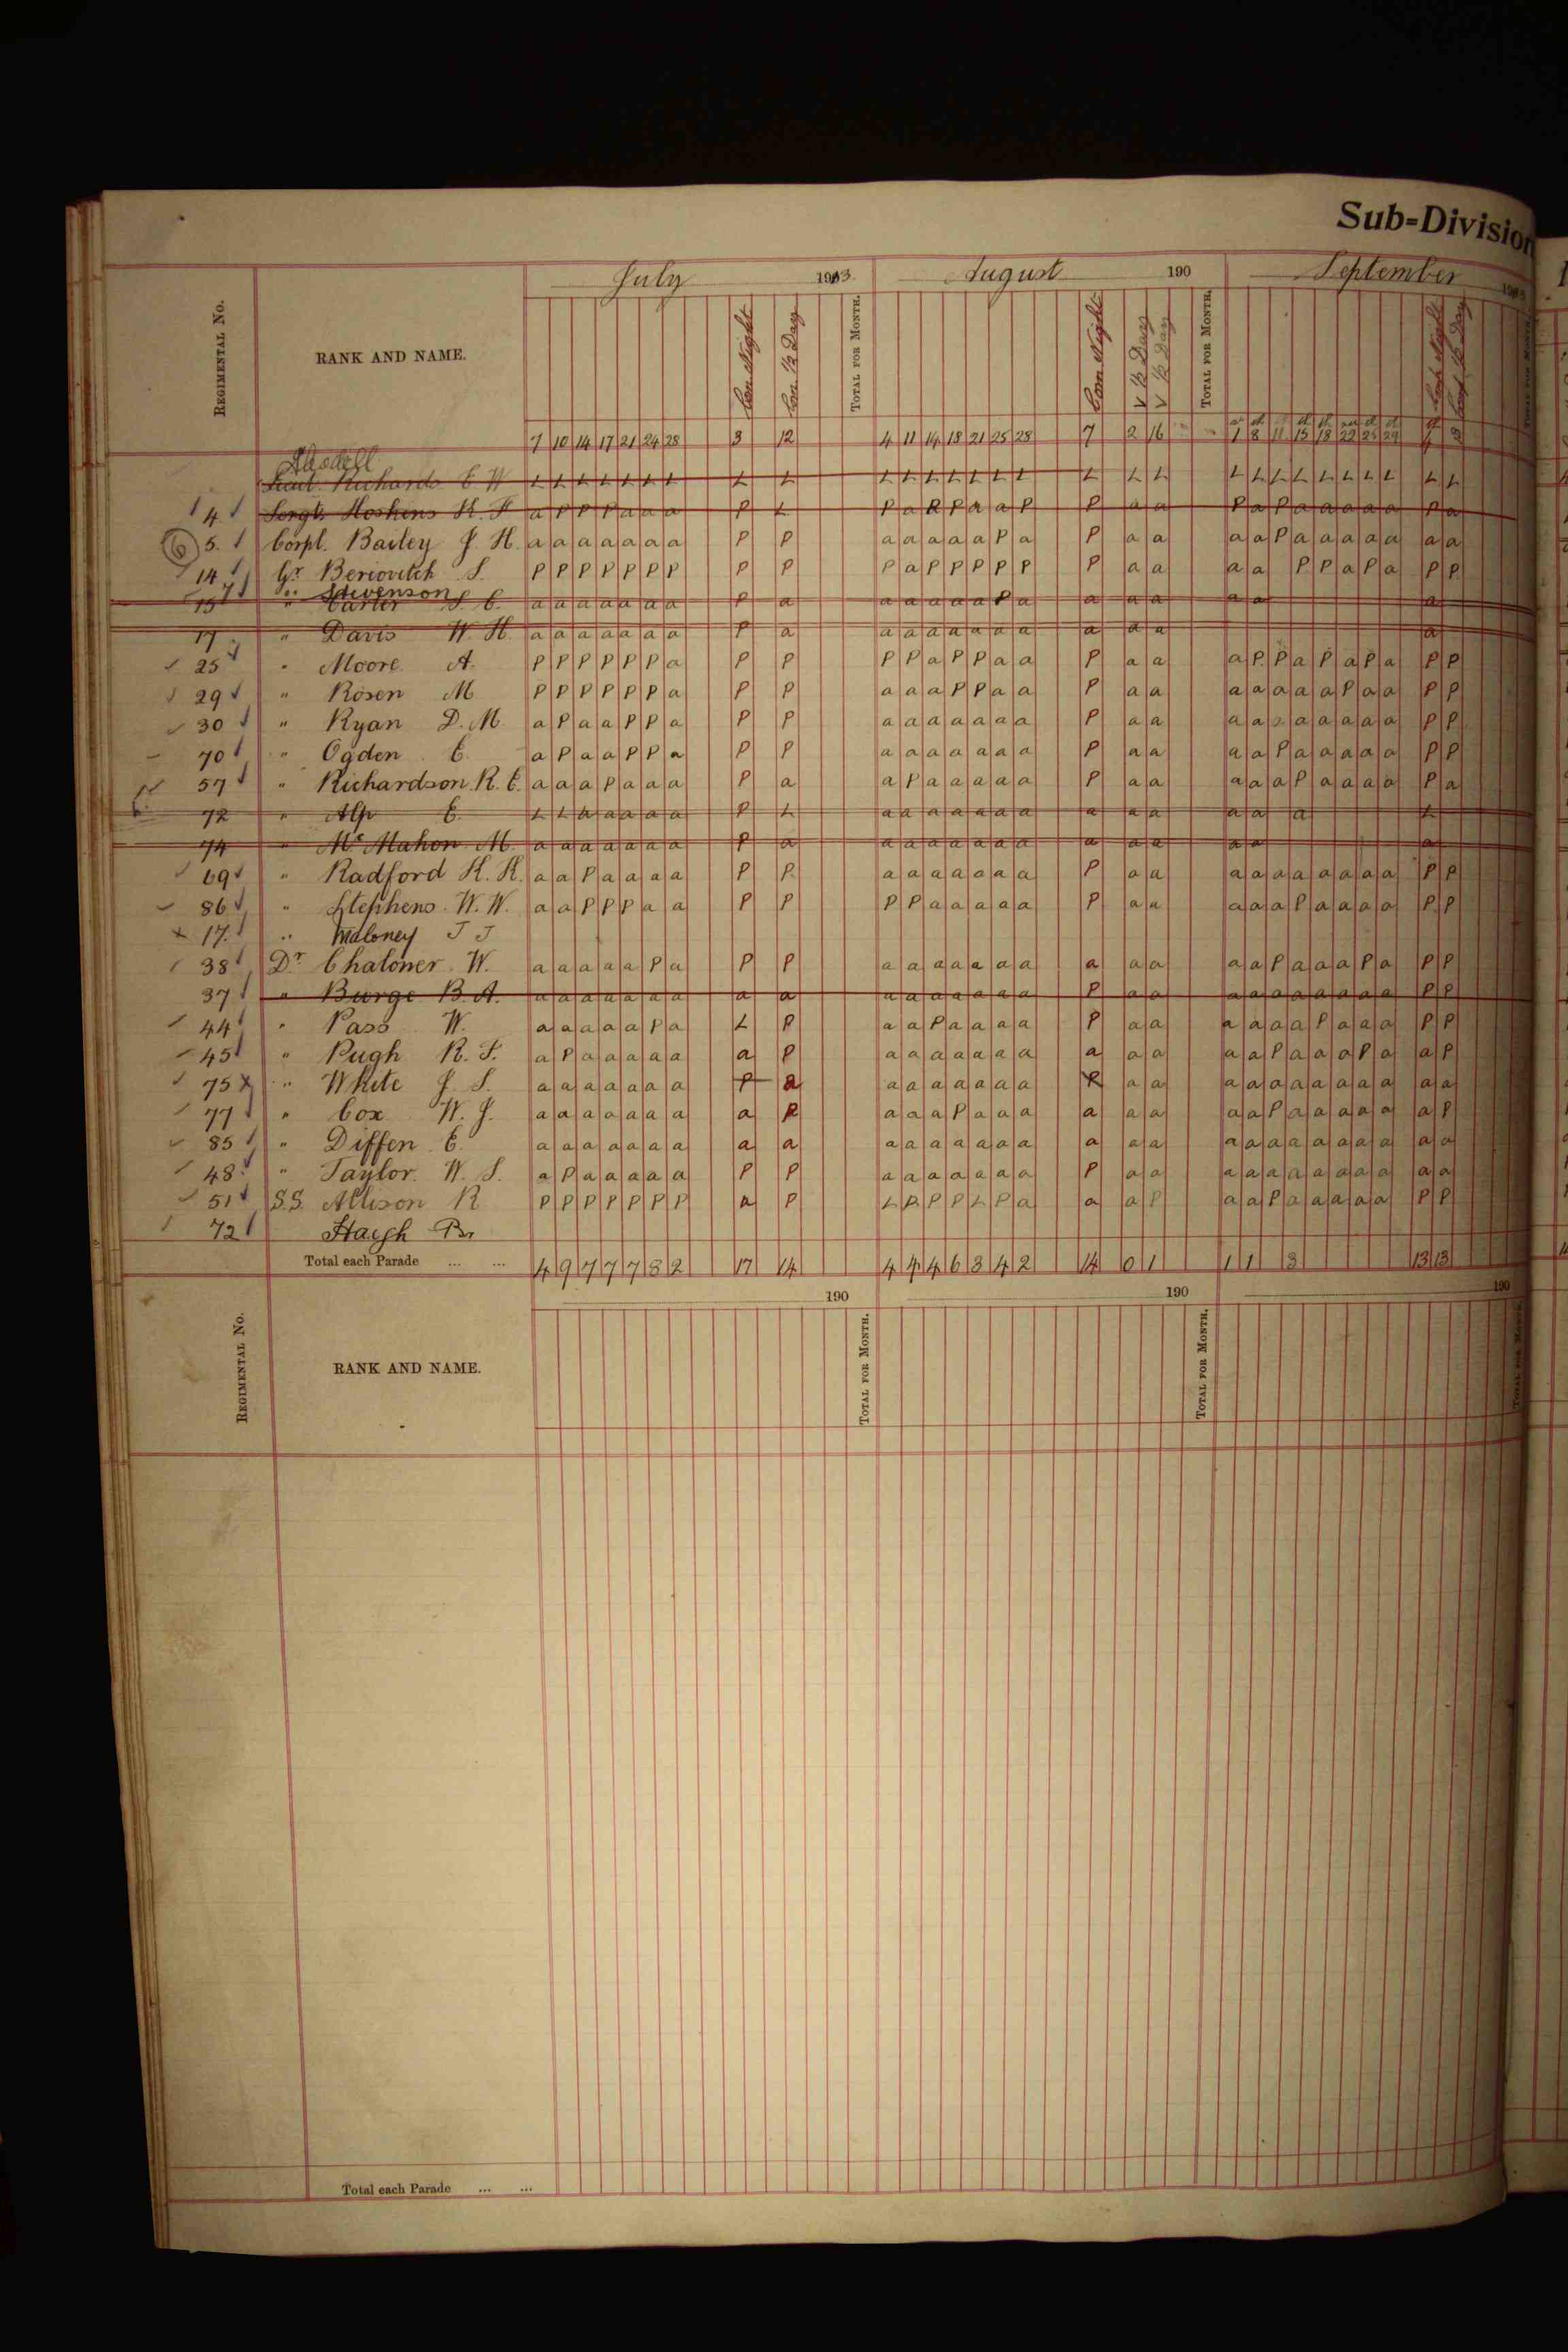 Sub-Division
REGIMENTAL NO. RANK AND NAME. July 1903 August 190 September
Com Night Com. ½ Day TOTAL FOR MONTH. Com Night V ½ Day V ½ Day TOTAL FOR MONTH.
7 10 14 17 21 24 28 3 12 4 11 14 18 21 25 28 7 2 16 1 8 11 15 18 22 25 29
Lieut. Richards E W L L L L L L L L L L L L L L L L L L L L L L L L L L L L L
4 Sergt. Hoskens H. F a P P P a a a P L P a R P a a P P a a P a P a a a a a P a
6 5. Corpl. Bailey J. H. a a a a a a a P P a a a a a P a P a a a a P a a a a a a a
14 Gr Beriovitch S. P P P P P P P P P P a P P P P P P a a a a P P a P a P P
7 " Stevenson
15 " Carter S. C. a a a a a a a P a a a a a a P a a a a a a a
17 " Davis W. H. a a a a a a a P a a a a a a a a a a a a
25 " Moore A. P P P P P P a P P P P a P P a a P a a a P P a P a P a P P
29 " Rosen M P P P P P P a P P a a a P P a a P a a a a a a a P a a P P
30 " Ryan D. M. a P a a P P a P P a a a a a a a P a a a a a a a a a a P P
70 " Ogden E. a P a a P P a P P a a a a a a a P a a a a P a a a a a P P
57 " Richardson R. E. a a a P a a a P a a P a a a a a P a a a a a P a a a a P a
72 " Alp E. L L a a a a a P L a a a a a a a a a a a a a L
74 " Mc Mahon M. a a a a a a a P a a a a a a a a a a a a a a
69 " Radford H. H. a a P a a a a P P a a a a a a a P a a a a a a a a a a P P
86 " Stephens W. W. a a P P P a a P P P P a a a a a P a a a a a P a a a a P P
17. " Maloney J J
38 Dr Chaloner W. a a a a a P a P P a a a a a a a a a a a a P a a a P a P P
37 " Burge B. A. a a a a a a a a a a a a a a a a P a a a a a a a a a a P P
44 " Pass W. a a a a a P a L P a a P a a a a P a a a a a a P a a a P P
45 " Pugh R. S. a P a a a a a a P a a a a a a a a a a a a P a a a P a a P
75 " White J. S. a a a a a a a P a a a a a a a a R a a a a a a a a a a a a
77 " Cox W. J. a a a a a a a a P a a a P a a a a a a a a P a a a a a a P
85 " Diffen E. a a a a a a a a a a a a a a a a a a a a a a a a a a a a a
48 " Taylor. W. S. a P a a a a a P P a a a a a a a P a a a a a a a a a a a a
51 S.S. Allison R P P P P P P P a P L P P P L P a a a P a a P a a a a a P P
72 Haigh
Total each Parade ... ... 4 9 7 7 7 8 2 17 14 4 4 4 6 3 4 2 14 0 1 1 1 3 13 13
REGIMENTAL NO. RANK AND NAME. 190 TOTAL FOR MONTH. 190 TOTAL FOR MONTH. 190 TOTAL FOR MONTH.
Total each Parade ... ...